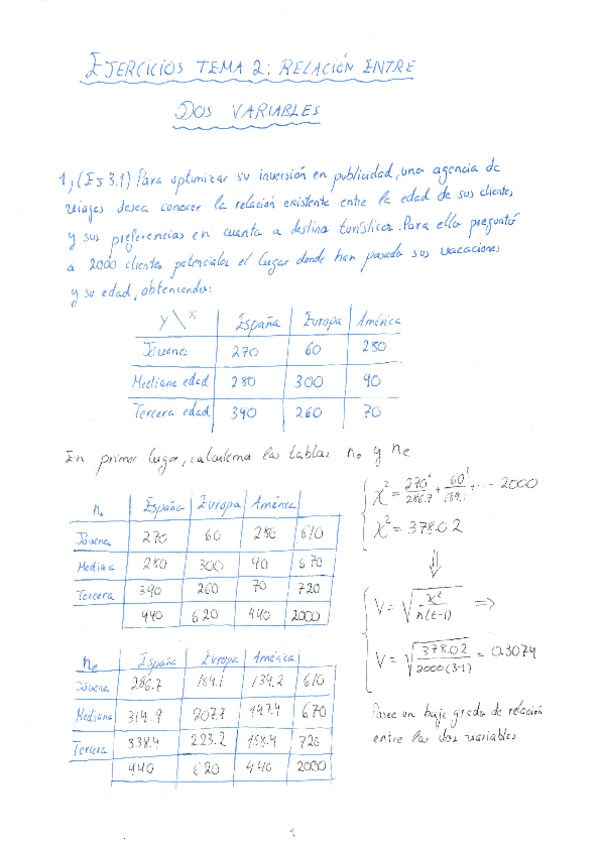 EJERCICIOS TEMA 2: RELACIÓN ENTRE
DOS VARIABLES
1, (Ej 3.1) Para optimizar su inversión en publicidad, una agencia de
viajes desea conocer la relación existente entre la edad de sus clientes
y sus preferencias en cuanto a destino turístico. Para ello preguntó
a 2000 clientes potenciales el lugar donde han pasado sus vacaciones
y su edad, obteniendo:
Y \ X España Europa América
Jóvenes 270 60 280
Mediana edad 280 300 90
Tercera edad 390 260 70
En primer lugar, calculemos las tablas no y ne
no España Europa América
Jóvenes 270 60 280 610
Mediana 280 300 90 670
Tercera 390 260 70 720
940 620 440 2000
χ² = 270²/286.7 + 60²/189.1 + ... - 2000
χ² = 378.02
⇓
V = √(χ²/n(t-1)) ⇒
V = √(378.02/2000(3-1)) = 0.3074
Posee un bajo grado de relación
entre las dos variables
ne España Europa América
Jóvenes 286.7 189.1 134.2 610
Mediana 314.9 207.7 147.4 670
Tercera 338.4 223.2 158.4 720
940 620 440 2000
1